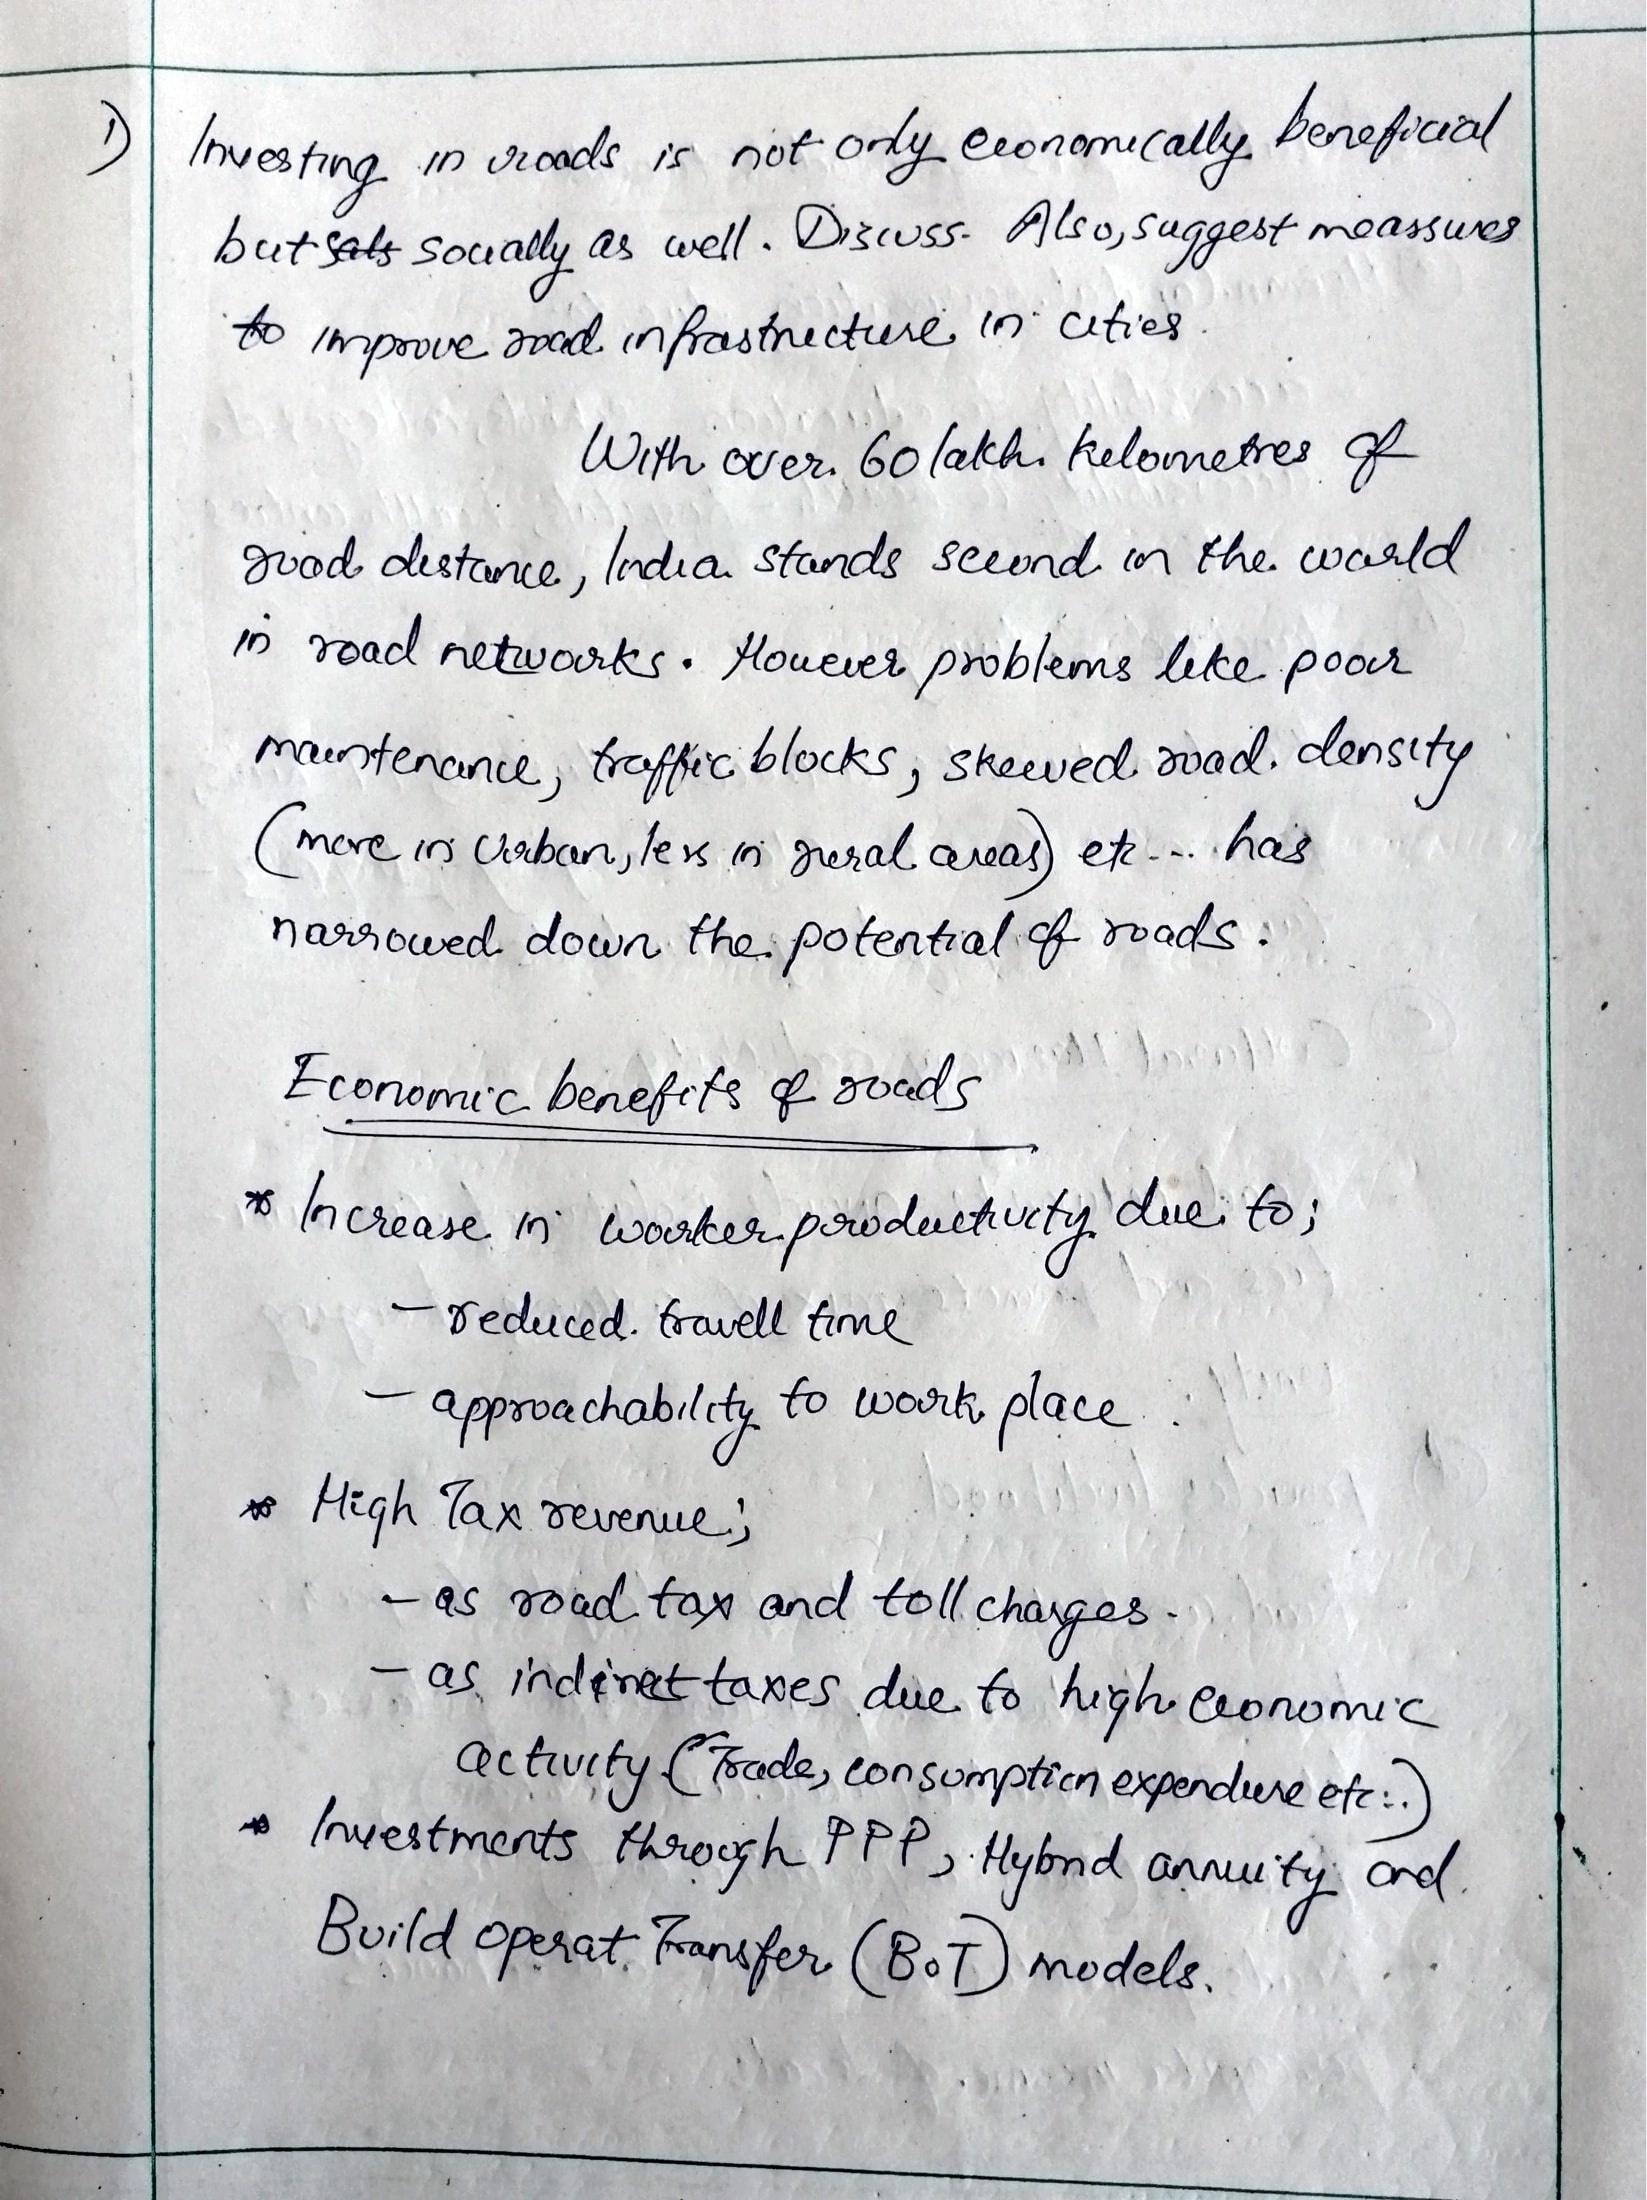 1) Investing in roads is not only economically beneficial
but sals socially as well. Discuss. Also, suggest meassures
to improve road infrastructure in cities.
With over 60 lakh kilometres of
road distance, India stands second in the world
in road networks. However problems like poor
maintenance, traffic blocks, skewed road density
(more in Urban, less in rural areas) etc... has
narrowed down the potential of roads.
Economic benefits of roads
* Increase in worker productivity due to;
- reduced travell time
- approachability to work place
* High Tax revenue;
- as road tax and toll charges.
- as indirect taxes due to high economic
activity (Trade, consumption expendiure etc...)
* Investments through PPP, Hybrid annuity and
Build operat Transfer (BoT) models.